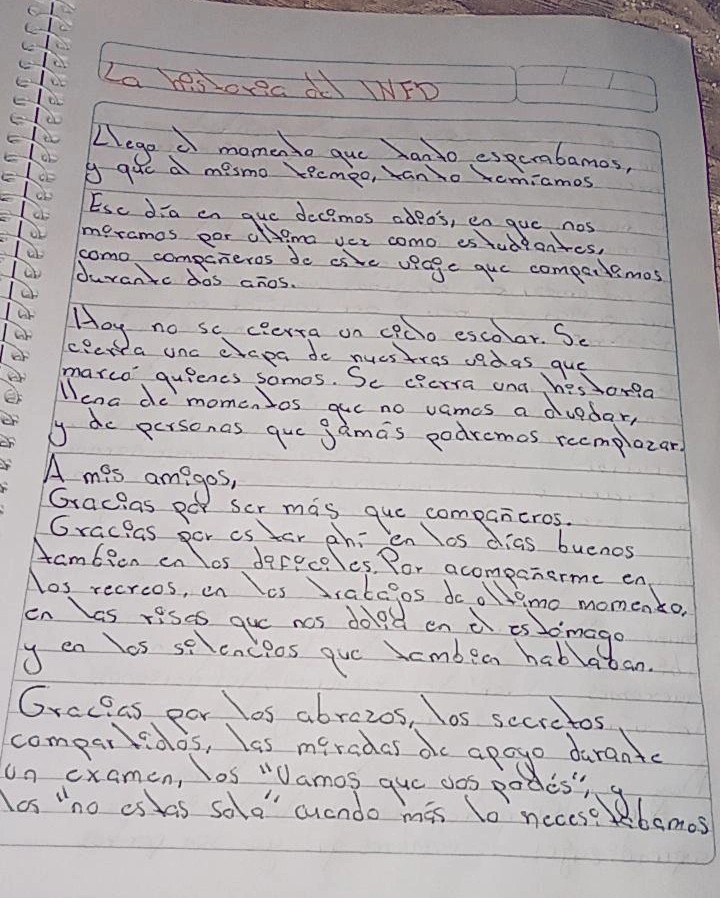 La historia del INFD
Llego el momento que tanto esperabamos,
y que al mismo tiempo, tanto temíamos
Ese día en que decimos adios, en que nos
miramos por ultima vez como estudiantes,
como compañeros de este viage que compartimos
durante dos años.
Hoy no se cierra un ciclo escolar. Se
cierra una etapa de nuestras vidas que
marco quienes somos. Se cierra una historia
llena de momentos que no vamos a olvidar,
y de personas que jamás podremos reemplazar.
A mis amigos,
Gracias por ser más que compañeros.
Gracias por estar ahí en los días buenos
tambien en los dificiles. Por acompañarme en
los recreos, en los trabajos de ultimo momento,
en las risas que nos dolía en el estómago
y en los silencios que tambien hablaban.
Gracias por los abrazos, los secretos
compartidos, las miradas de apoyo durante
un examen, los "Vamos que vos podés", y
los "no estas sola" cuando más lo necesitabamos